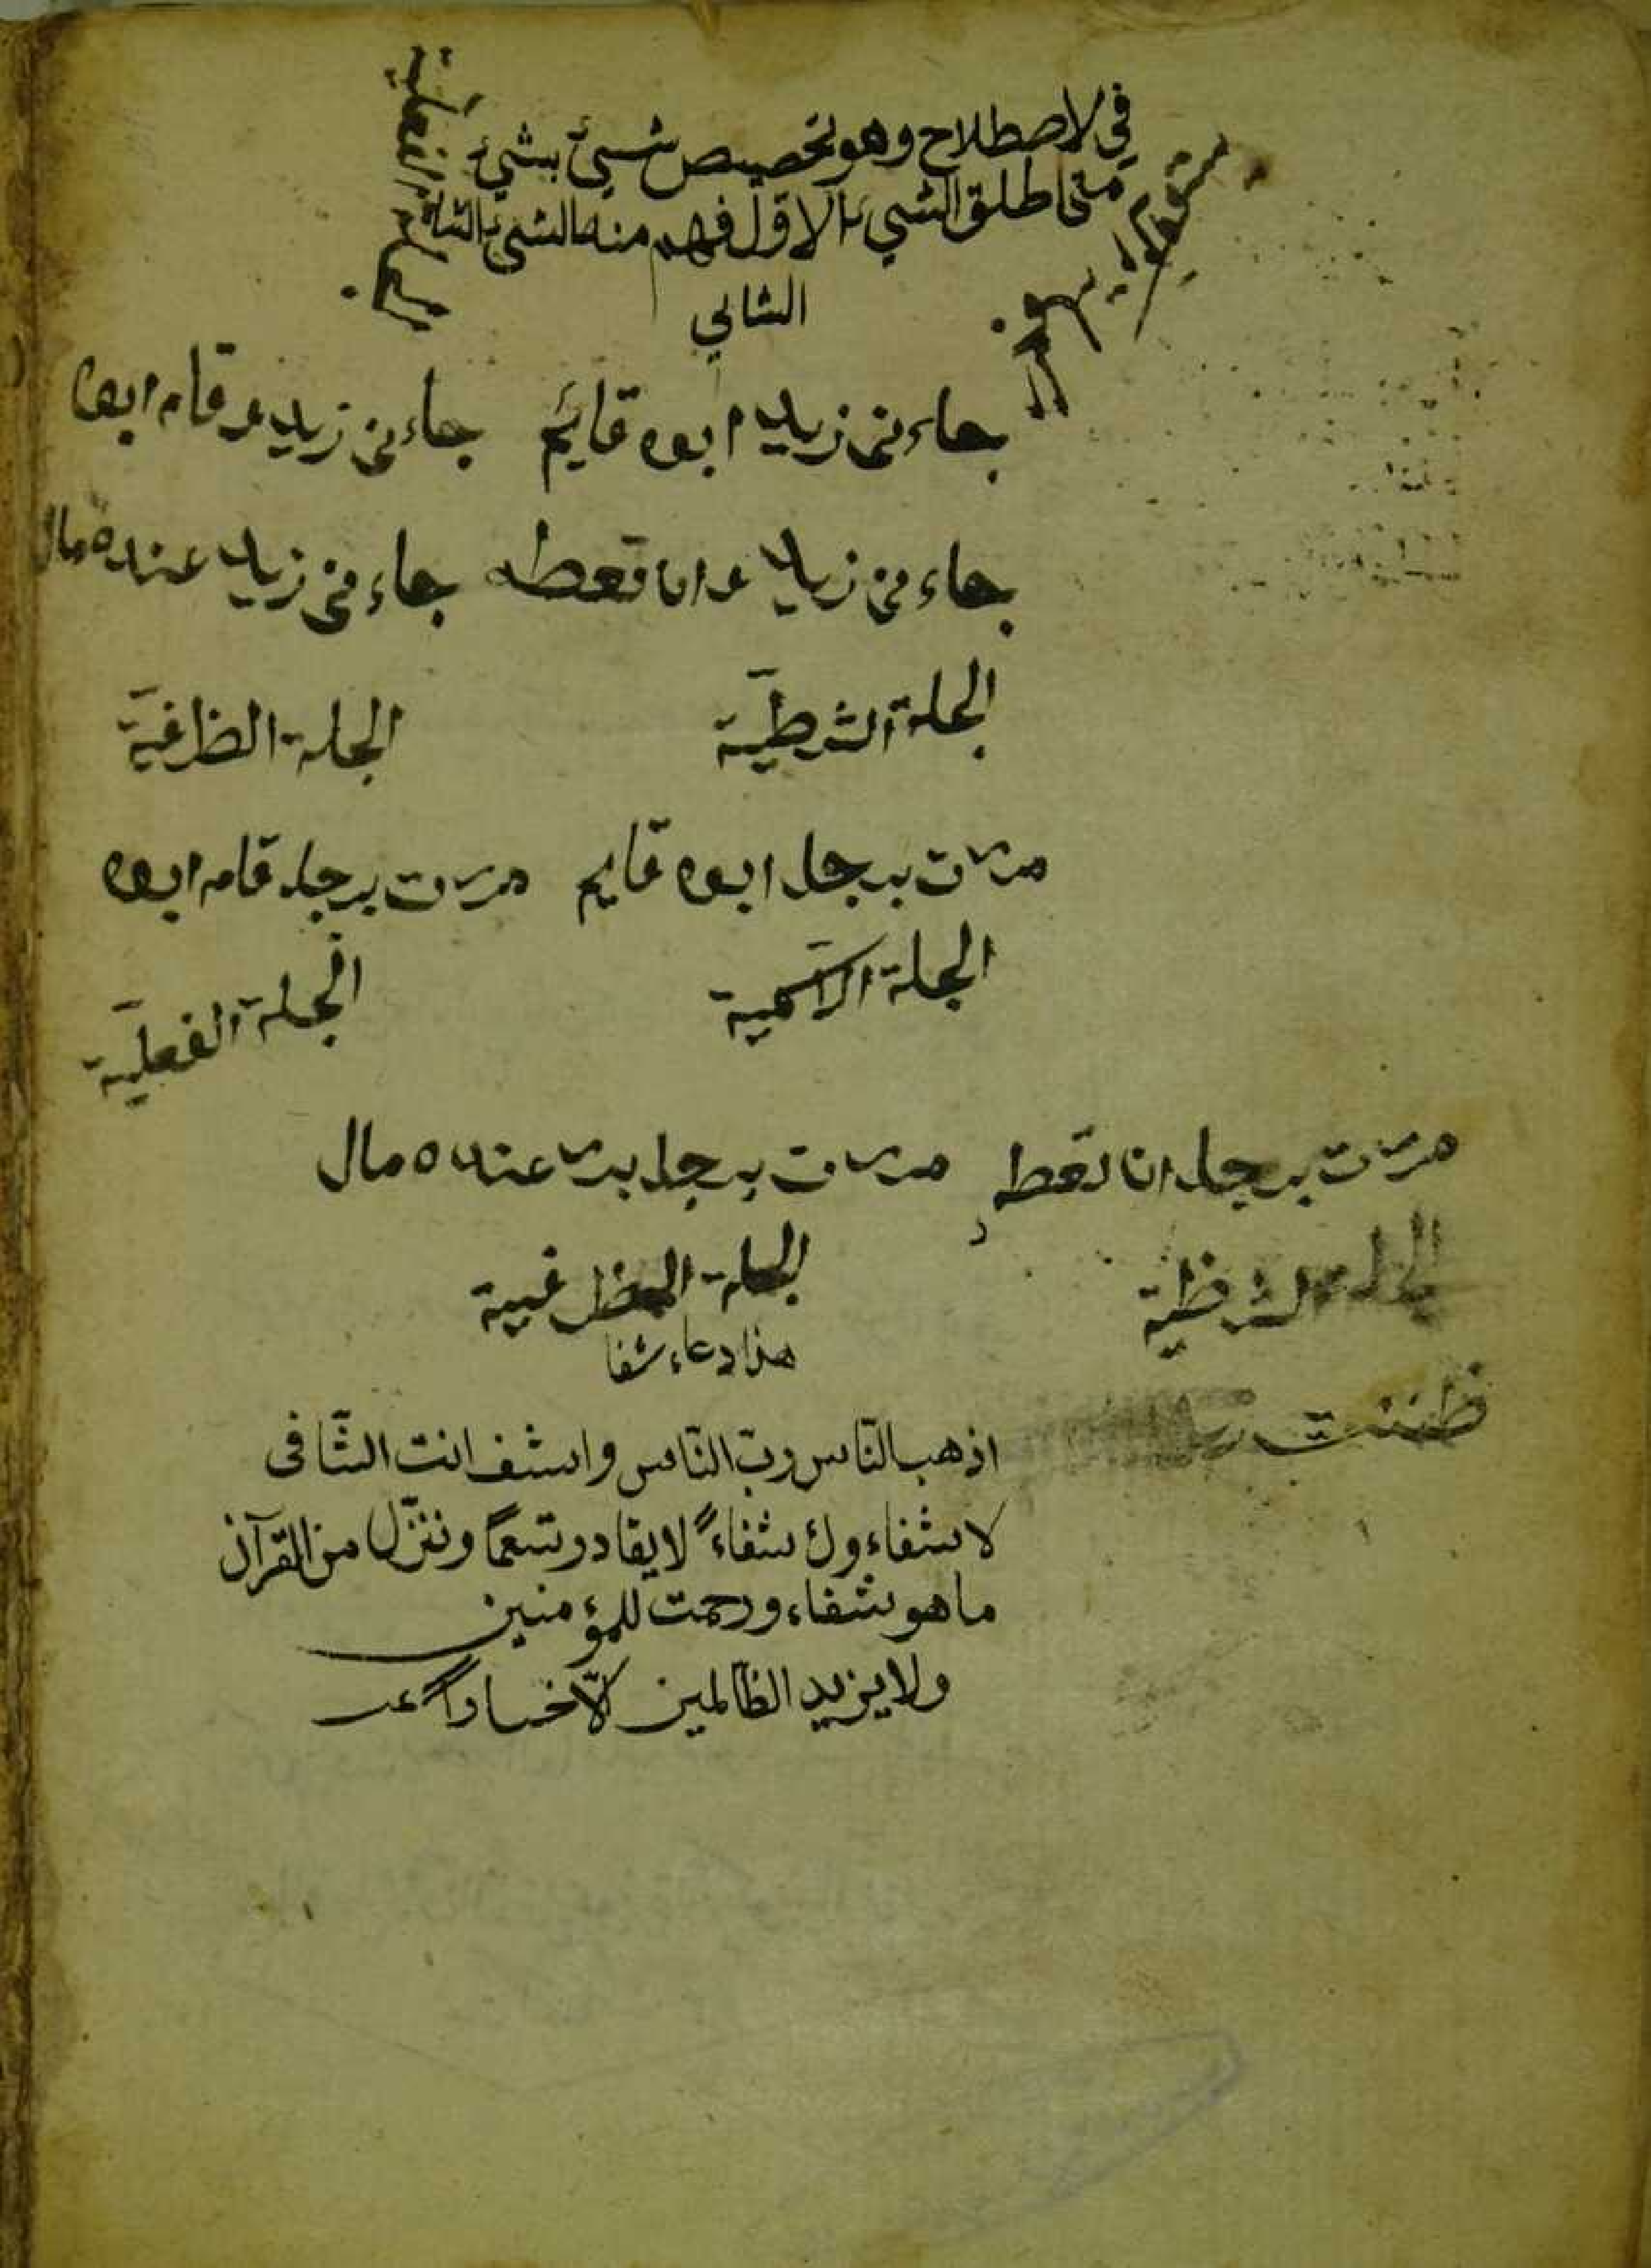 في لاصطلاح وهو تخصيص شيئ بشيئ
متى اطلق الشيء الاول فهم منه الشيء الثا
الثاني
الجملة الاسمية
الجملة الفعلية
جاءنى زيد ابوه قايم جاءنى زيد و قام ابوه
جاءنى زيد و ان تعطه جاءنى زيد عنده مال
الجملة الشرطيّة الجملة الظرفيّة
مررت برجل ابوه قايم مررت برجل قام ابوه
الجملة الاسمية الجملة الفعليّة
مررت برجل ان تعط مررت برجل عنده مال
الجملة الشرطية الجملة الظرفية
هذا دعاء شفا
ظننت
اذهب النّاس ربّ النّاس واشف انت الشّافى
لا شفاء ولا شفاءً لا يقادر سقمًا وننزّل من القرآن
ما هو شفاء ورحمت للمؤمنين
ولا يزيد الظالمين الّا خسارًا